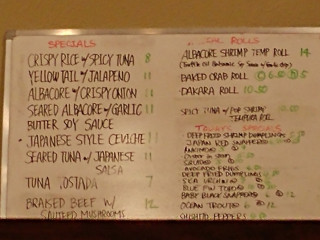 SPECIALS
CRISPY RICE w/ SPICY TUNA 8
YELLOW TAIL w/ JALAPENO 11
ALBACORE w/ CRISPY ONION 11
SEARED ALBACORE w/ GARLIC 11
BUTTER SOY SAUCE
JAPANESE STYLE CEVICHE 11
SEARED TUNA w/ JAPANESE 11
SALSA
TUNA TOSTADA 7
BRAISED BEEF w/ 12
SAUTEED MUSHROOMS
ROLLS
ALBACORE SHRIMP TEMP ROLL 14
BAKED CRAB ROLL
DAKARA ROLL 10.50
SPICY TUNA w/ POP SHRIMP
TEMPURA ROLL
TODAYS SPECIALS
DEEP FRIED SHRIMP DUMPLINGS
JAPAN RED SNAPPER
AVOCADO FRIES
DEEP FRIED DUMPLINGS
SEA URCHIN
BLUE FIN TORO
BABE BLACK SNAPPER 12
OCEAN TROUT 12
SHISHITO PEPPERS